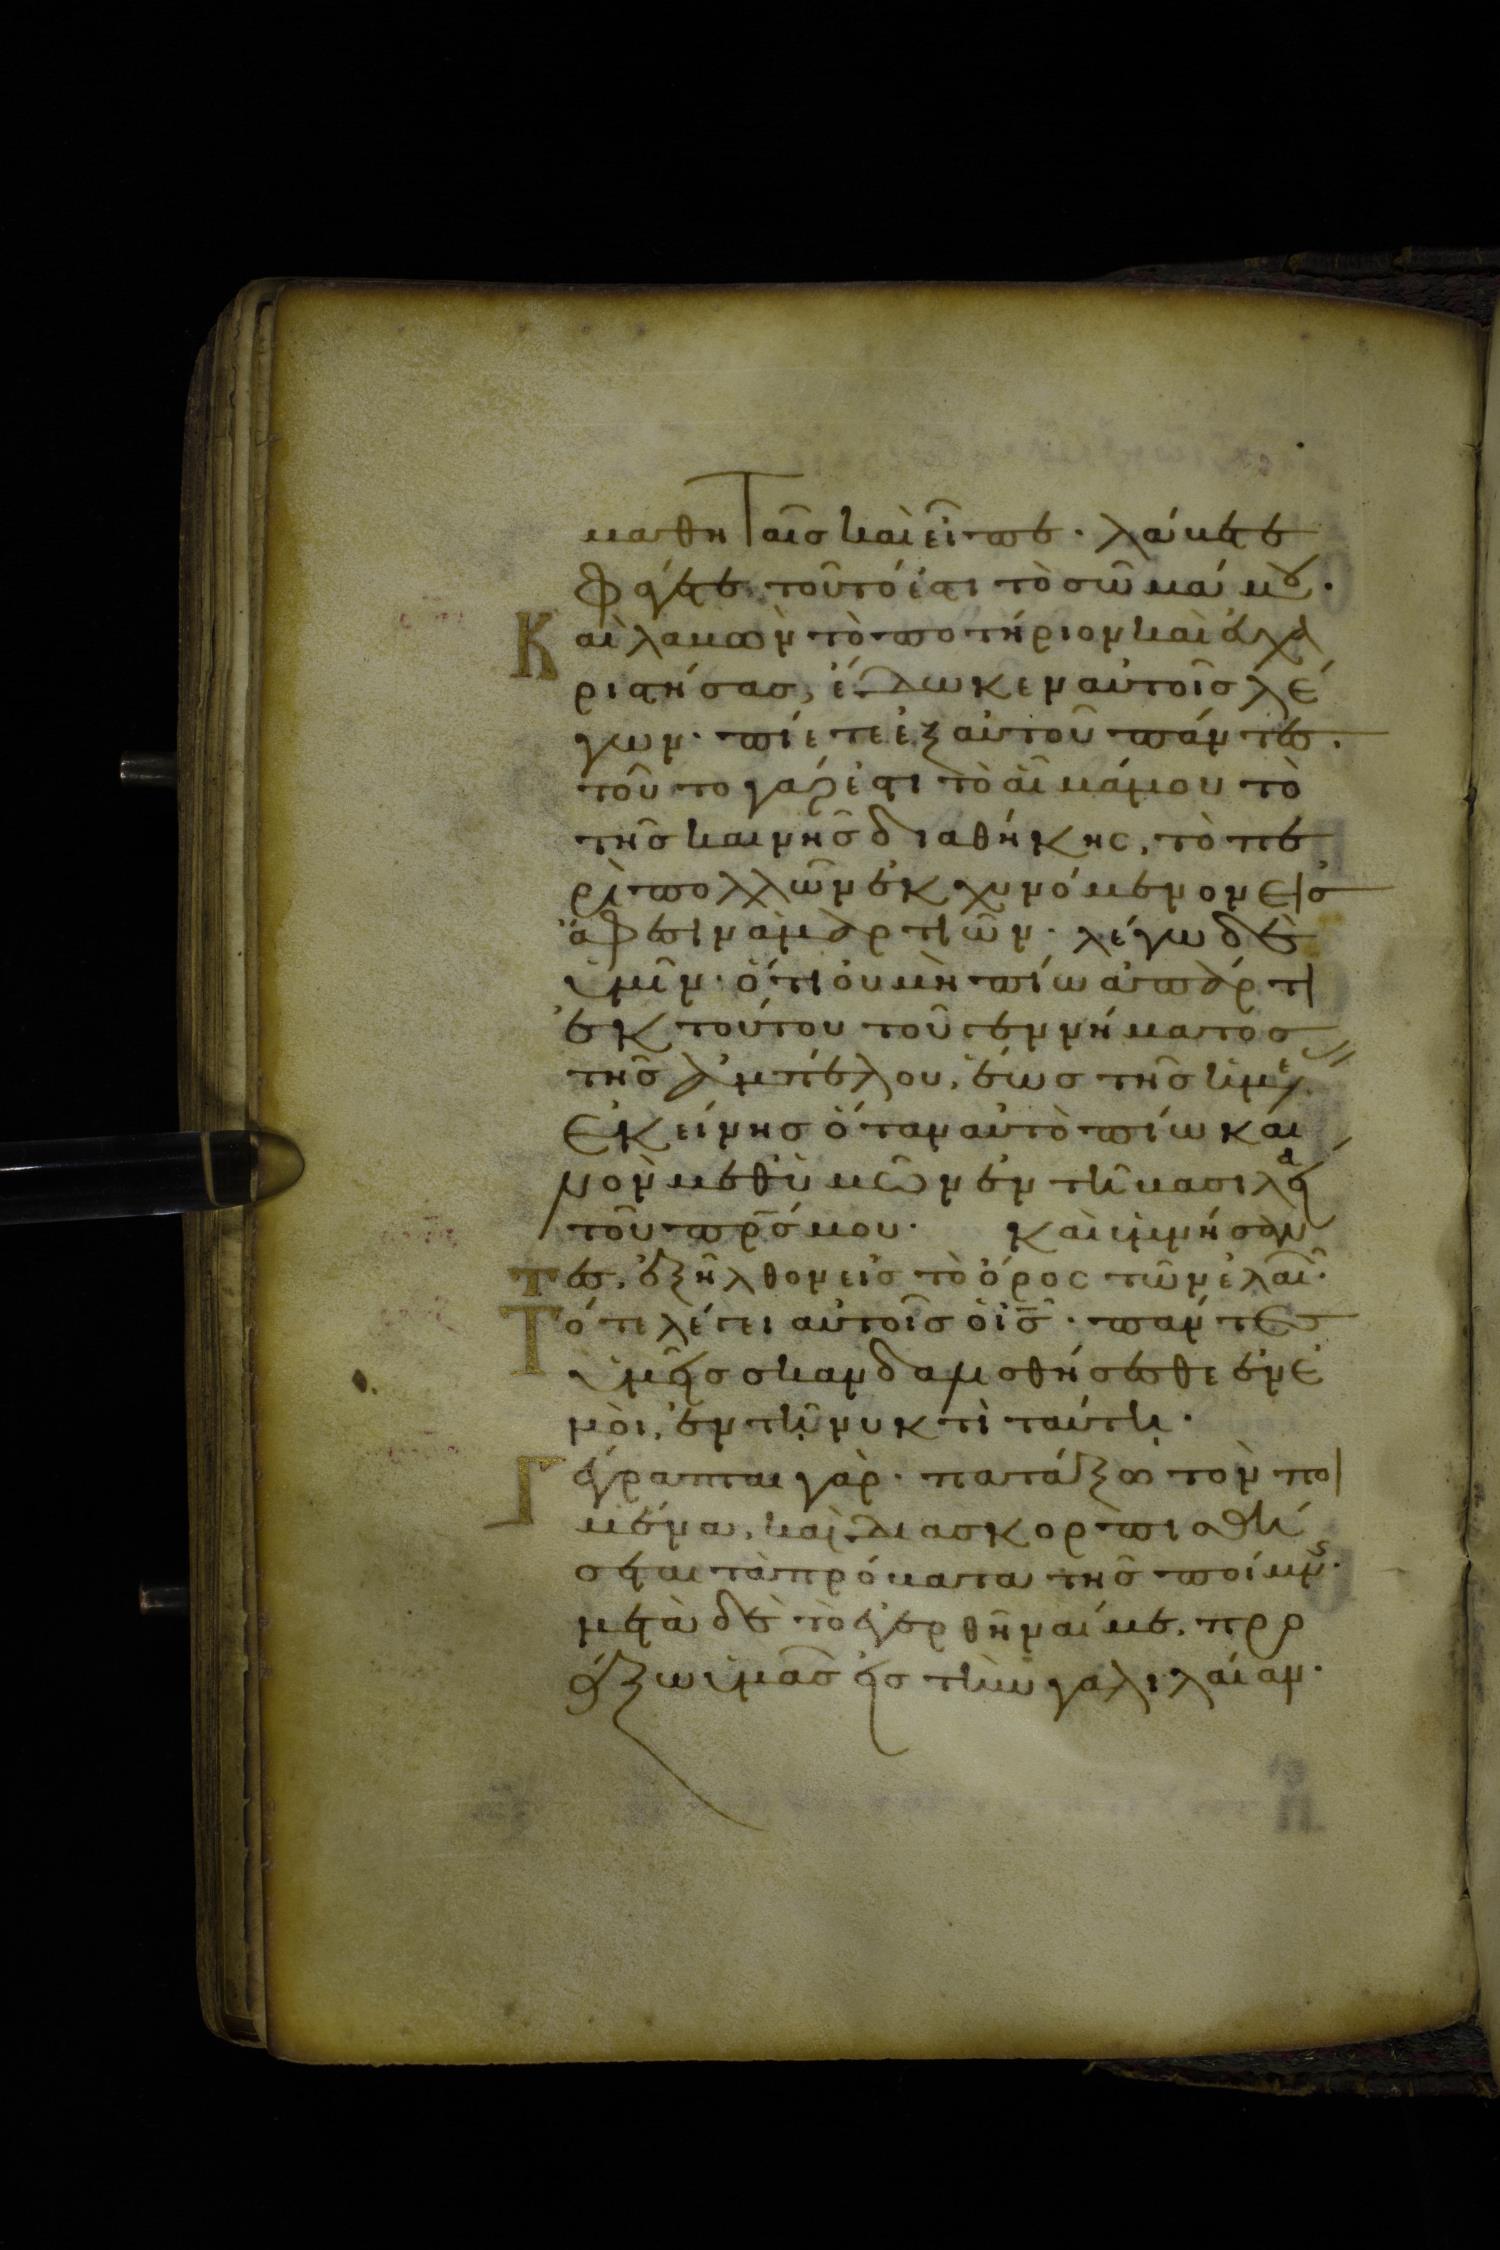 μαθηταῖσ καὶ εἶπε· λάβετε
φάγετε, τοῦτό ἐστι τὸ σῶμά μου·
Καὶ λαβὼν τὸ ποτήριον καὶ ἐυχα
ριστήσασ, ἔδωκεν αὐτοῖσ λέ
γων· πίετε ἐξ αὐτοῦ πάντες.
τοῦτο γάρ ἐστι τὸ αἷμά μου τὸ
τῆσ καινῆσ διαθήκης, τὸ πε
ρὶ πολλῶν ἐκχυνόμενον εἰσ
ἄφεσιν ἁμαρτιῶν· λέγω δὲ
ὑμῖν· ὅτι ὀυ μὴ πίω ἀπάρτι
ἐκ τούτου τοῦ γεννήματοσ
τῆσ ἀμπέλου, ἕωσ τῆσ ἡμέρ
ἐκείνησ ὅταν αὐτὸ πίω και
νὸν μεθ' ὑμῶν ἐν τῆ βασιλεία
τοῦ πρσ μου· Καὶ ὑμνήσαν
τεσ, ἐξῆλθον εἰσ τὸ ὄρος τῶν ἐλαι·
Τότε λέγει αὐτοῖσ ὁ ισ· πάντεσ
ὑμεῖσ σκανδαλισθήσεσθε ἐν ἐ
μοὶ, ἐν τῆ νυκτὶ ταύτη·
Γέγραπται γὰρ· πατάξω τὸν ποι
μένα, καὶ διασκορπισθή
σεται τὰ πρόβατα τῆσ ποίμνης·
μετὰ δὲ τὸ ἐγερθῆναί με, προ
άξω ὑμᾶσ εἰσ τὴν γαλιλαίαν·